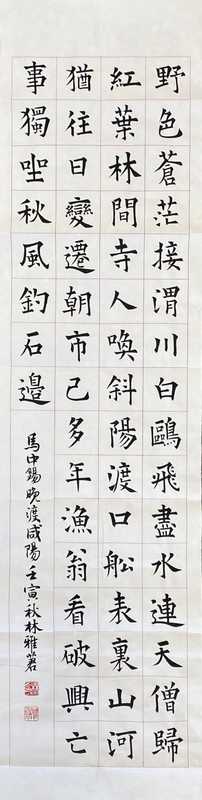 野色蒼茫接渭川白鷗飛盡水連天僧歸
紅葉林間寺人喚斜陽渡口船表裏山河
猶往日變遷朝市已多年漁翁看破興亡
事獨坐秋風釣石邊
馬中錫晚渡咸陽壬寅秋林雅莙